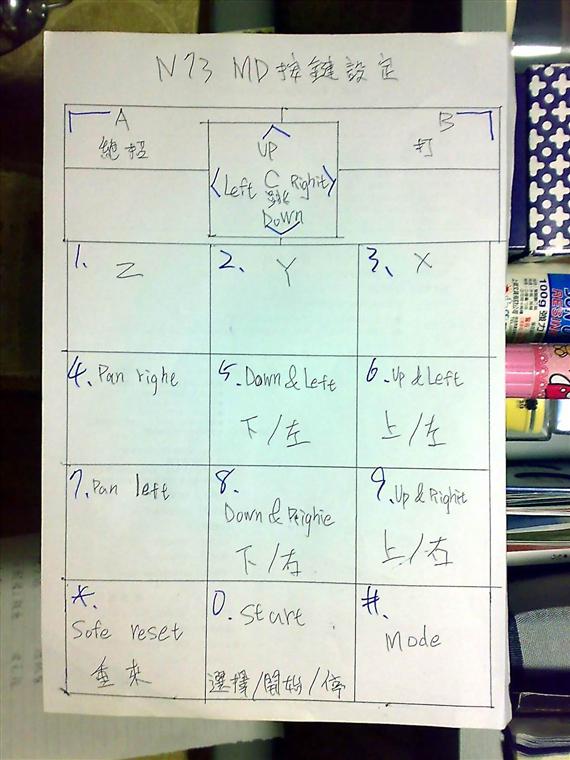 N73 MD按鍵設定
A
絕招
UP
Left C Righit
跳
Down
B
打
1. Z
2. Y
3. X
4. Pan right
5. Down & Left
下/左
6. Up & Left
上/左
7. Pan left
8.
Down & Reighie
下/右
9. Up & Righit
上/右
*.
Sofe reset
重來
0. Start
選擇/開始/停
#.
Mode
100g 強力
RESIN